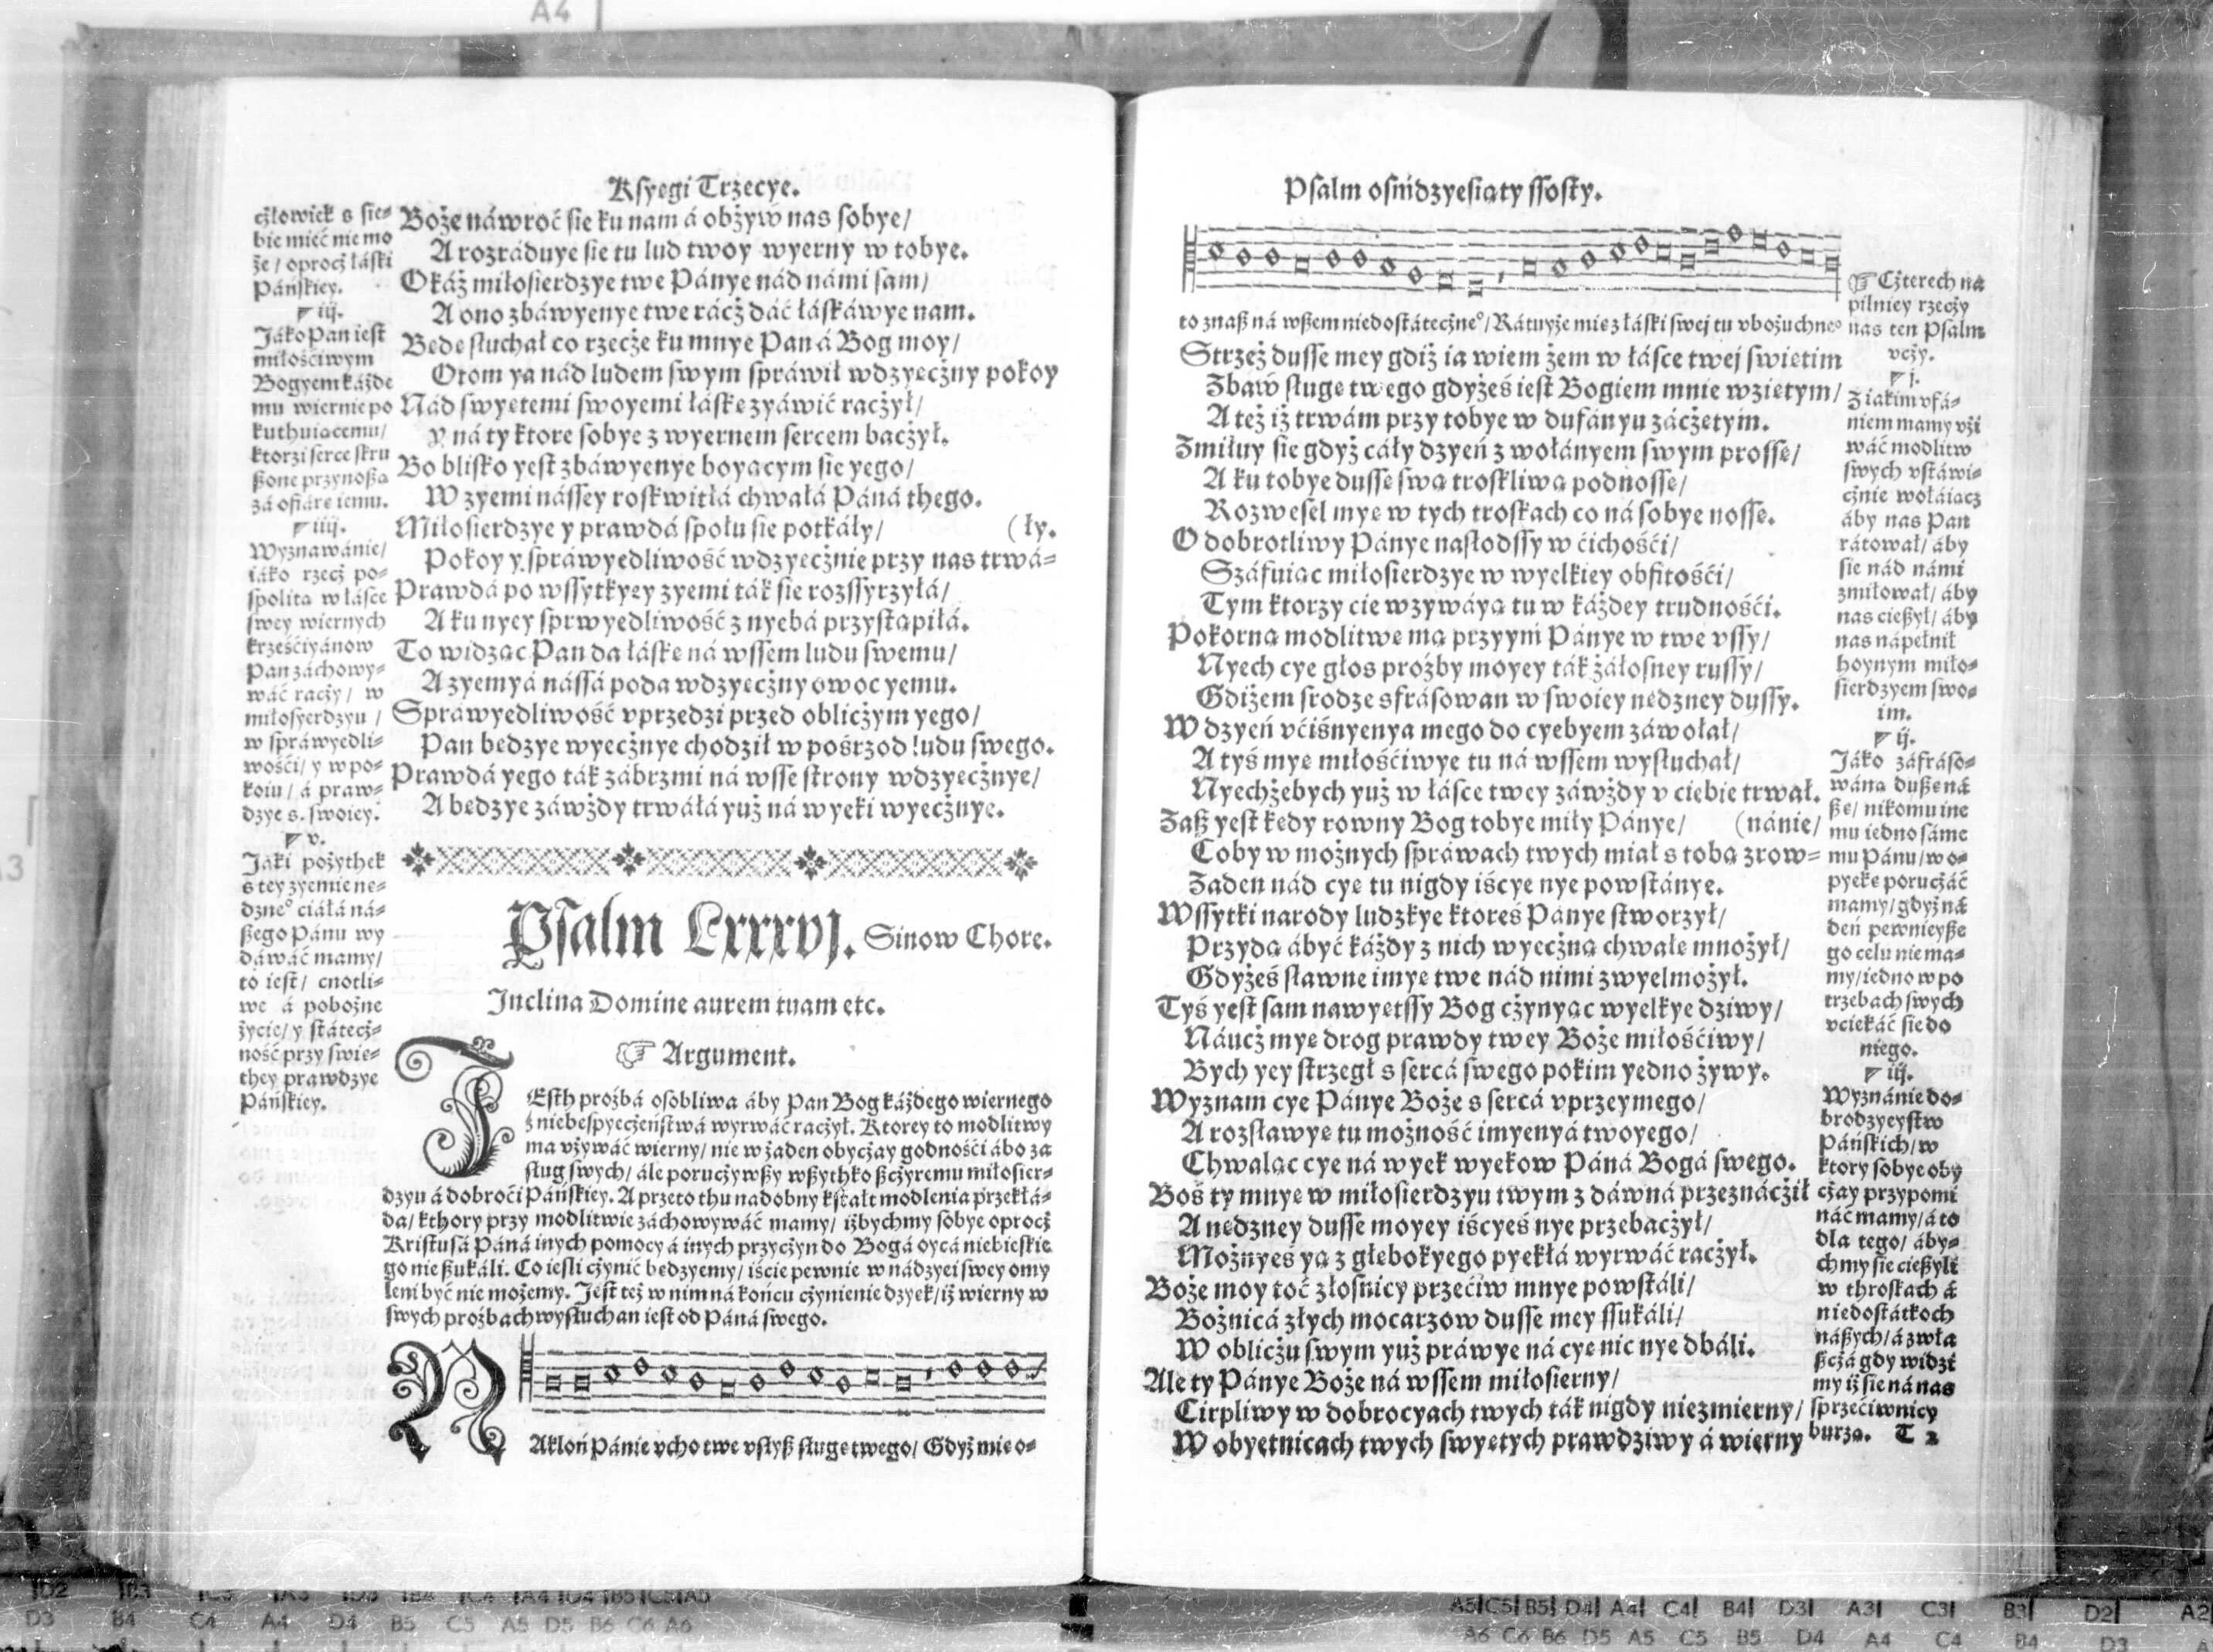 Ksyęgi Trzecye.
człowiek s sie⸗
bie mieć nie mo
że / oprocż łáski
Páńskiey.
iij.
Jáko Pan iest
miłościwym
Bogyem każde
mu wiernie po
kuthuiącemu /
ktorzi serce skru
ßone przynoßą
zá ofiárę iemu.
iiij.
Wyznawánie /
iáko rzecż po⸗
spolita w łásce
swey wiernych
krześćiyánow
Pan záchowy⸗
wáć racży / w
miłosyerdzyu /
w spráwyedli⸗
wośći / y w po⸗
koiu / á praw⸗
dzye s. swoiey.
v.
Jáki pożythek
s tey zyemie nę⸗
dzneº ciáłá ná⸗
ßego Pánu wy
dáwáć mamy /
to iest / cnotli⸗
we á pobożne
życie / y státecż⸗
ność przy swię⸗
they prawdzye
Páńskiey.
Boże náwroć sie ku nam á obżyw nas sobye /
A rozráduye sie tu lud twoy wyerny w tobye.
Okáż miłosierdzye twe Pánye nád námi sam /
A ono zbáwyenye twe rácż dáć łáskáwye nam.
Będę słuchał co rzecże ku mnye Pan á Bog moy /
Otom ya nád ludem swym spráwił wdzyęcżny pokoy
Nád swyętemi swoyemi łáskę zyáwić racżył /
Y ná ty ktore sobye z wyernem sercem bacżył.
Bo blisko yest zbáwyenye boyącym sie yego /
W zyemi nássey roskwitłá chwałá Páná thego.
Miłosierdzye y prawdá społu sie potkáły / (ły.
Pokoy y spráwyedliwość wdzyęcżnie przy nas trwá⸗
Prawdá po wssytkyey zyemi ták sie rozssyrzyłá /
A ku nyey sprwyedliwość z nyebá przystąpiłá.
To widząc Pan da łáskę ná wssem ludu swemu /
A zyemyá nássá poda wdzyęcżny owoc yemu.
Spráwyedliwość vprzedzi przed oblicżym yego /
Pan będzye wyecżnye chodził w pośrzod ludu swego.
Prawdá yego ták zábrzmi ná wsse strony wdzyęcżnye /
A będzye záwżdy trwáłá yuż ná wyeki wyecżnye.
Psalm Lxxxvj. Sinow Chore.
Inclina Domine aurem tuam etc.
Argument.
JEsth prożbá osobliwa áby Pan Bog káżdego wiernego
z niebespyecżeństwá wyrwáć racżył. Ktorey to modlitwy
ma vżywáć wierny / nie w żaden obycżay godnośći ábo za
sług swych / ále porucżywßy wßythko ßcżyremu miłosier⸗
dzyu á dobroći Páńskiey. A przeto thu nadobny kstałt modlenia przekłá⸗
da / kthory przy modlitwie záchowywáć mamy / iżbychmy sobye oprocż
Kristusá Páná inych pomocy á inych przycżyn do Bogá oycá niebieskie
go nie ßukáli. Co iesli cżynić będzyemy / iście pewnie w nádzyei swey omy
leni być nie możemy. Jest też w nim ná końcu cżynienie dzyęk / iż wierny w
swych prożbach wysłuchan iest od Páná swego.
NAkłoń Pánie vcho twe vsłyß sługę twego / Gdyż mie o⸗
Psalm ośmdzyesiąty ssosty.
to znaß ná wßem niedostátecżneº / Rátuyże mię z łáski swej tu vbożuchneº
Strzeż dusse mey gdiż ia wiem żem w łásce twej swiętim
Zbaw sługę twego gdyżeś iest Bogiem mnie wziętym /
A też iż trwám przy tobye w dufányu záczętym.
Zmiłuy sie gdyż cáły dzyeń z wołányem swym prosse /
A ku tobye dusse swą troskliwą podnosse /
Rozwesel mye w tych troskach co ná sobye nosse.
O dobrotliwy Pánye nasłodssy w ćichośći /
Száfuiąc miłosierdzye w wyelkiey obfitośći /
Tym ktorzy cie wzywáyą tu w káżdey trudnośći.
Pokorną modlitwę mą przyymi Pánye w twe vssy /
Nyech cye głos proźby moyey ták żáłosney russy /
Gdiżem srodze sfrásowan w swoiey nędzney dussy.
W dzyeń vćiśnyenya mego do cyebyem záwołał /
A tyś mye miłośćiwye tu ná wssem wysłuchał /
Nyechżebych yuż w łásce twey záwżdy v ciebie trwał.
Zaß yest kędy rowny Bog tobye miły Pánye / (nánie /
Coby w możnych spráwach twych miał s tobą zrow⸗
Żaden nád cye tu nigdy iścye nye powstánye.
Wssytki narody ludzkye ktoreś Pánye stworzył /
Przydą ábyć káżdy z nich wyecżną chwałę mnożył /
Gdyżeś sławne imye twe nád nimi zwyelmożył.
Tyś yest sam nawyętssy Bog cżynyąc wyelkye dziwy /
Náucż mye drog prawdy twey Boże miłośćiwy /
Bych yey strzegł s sercá swego pokim yedno żywy.
Wyznam cye Pánye Boże s sercá vprzeymego /
A rozsławye tu możność imyenyá twoyego /
Chwaląc cye ná wyek wyekow Páná Bogá swego.
Boś ty mnye w miłosierdzyu twym z dáwná przeznácżił
A nędzney dusse moyey iścyeś nye przebacżył /
Możnyeś yą z głębokyego pyekłá wyrwáć racżył.
Boże moy toć złosnicy przećiw mnye powstáli /
Bożnicá złych mocarzow dusse mey ssukáli /
W oblicżu swym yuż práwye ná cye nic nye dbáli.
Ale ty Pánye Boże ná wssem miłosierny /
Cirpliwy w dobrocyach twych ták nigdy niezmierny /
W obyetnicach twych swyętych prawdziwy á wierny
Cżterech na
pilniey rzecży
nas ten Psalm
vcży.
j.
Z iákim vfá⸗
niem mamy vżi
wáć modlitw
swych vstáwi⸗
cżnie wołáiącż
áby nas Pan
rátował / áby
sie nád námi
zmiłował / áby
nas cießył / áby
nas nápełnił
hoynym miło⸗
sierdzyem swo⸗
im.
ij.
Jáko záfráso⸗
wána duße ná
ße / nikomu ine
mu iedno sáme
mu Pánu / w o⸗
pyekę porucżáć
mamy / gdyż ná
deń pewnieyße
go celu nie ma⸗
my / iedno w po
trzebach swych
vciekáć sie do
niego.
iij.
Wyznánie do⸗
brodzyeystw
Páńskich / w
ktory sobye oby
cżay przypomi
náć mamy / á to
dla tego / áby⸗
chmy sie cießyli
w throskach á
niedostátkoch
náßych / á zwła
ßcżá gdy widzi
my iż sie ná nas
sprzećiwnicy
burzą. T 2